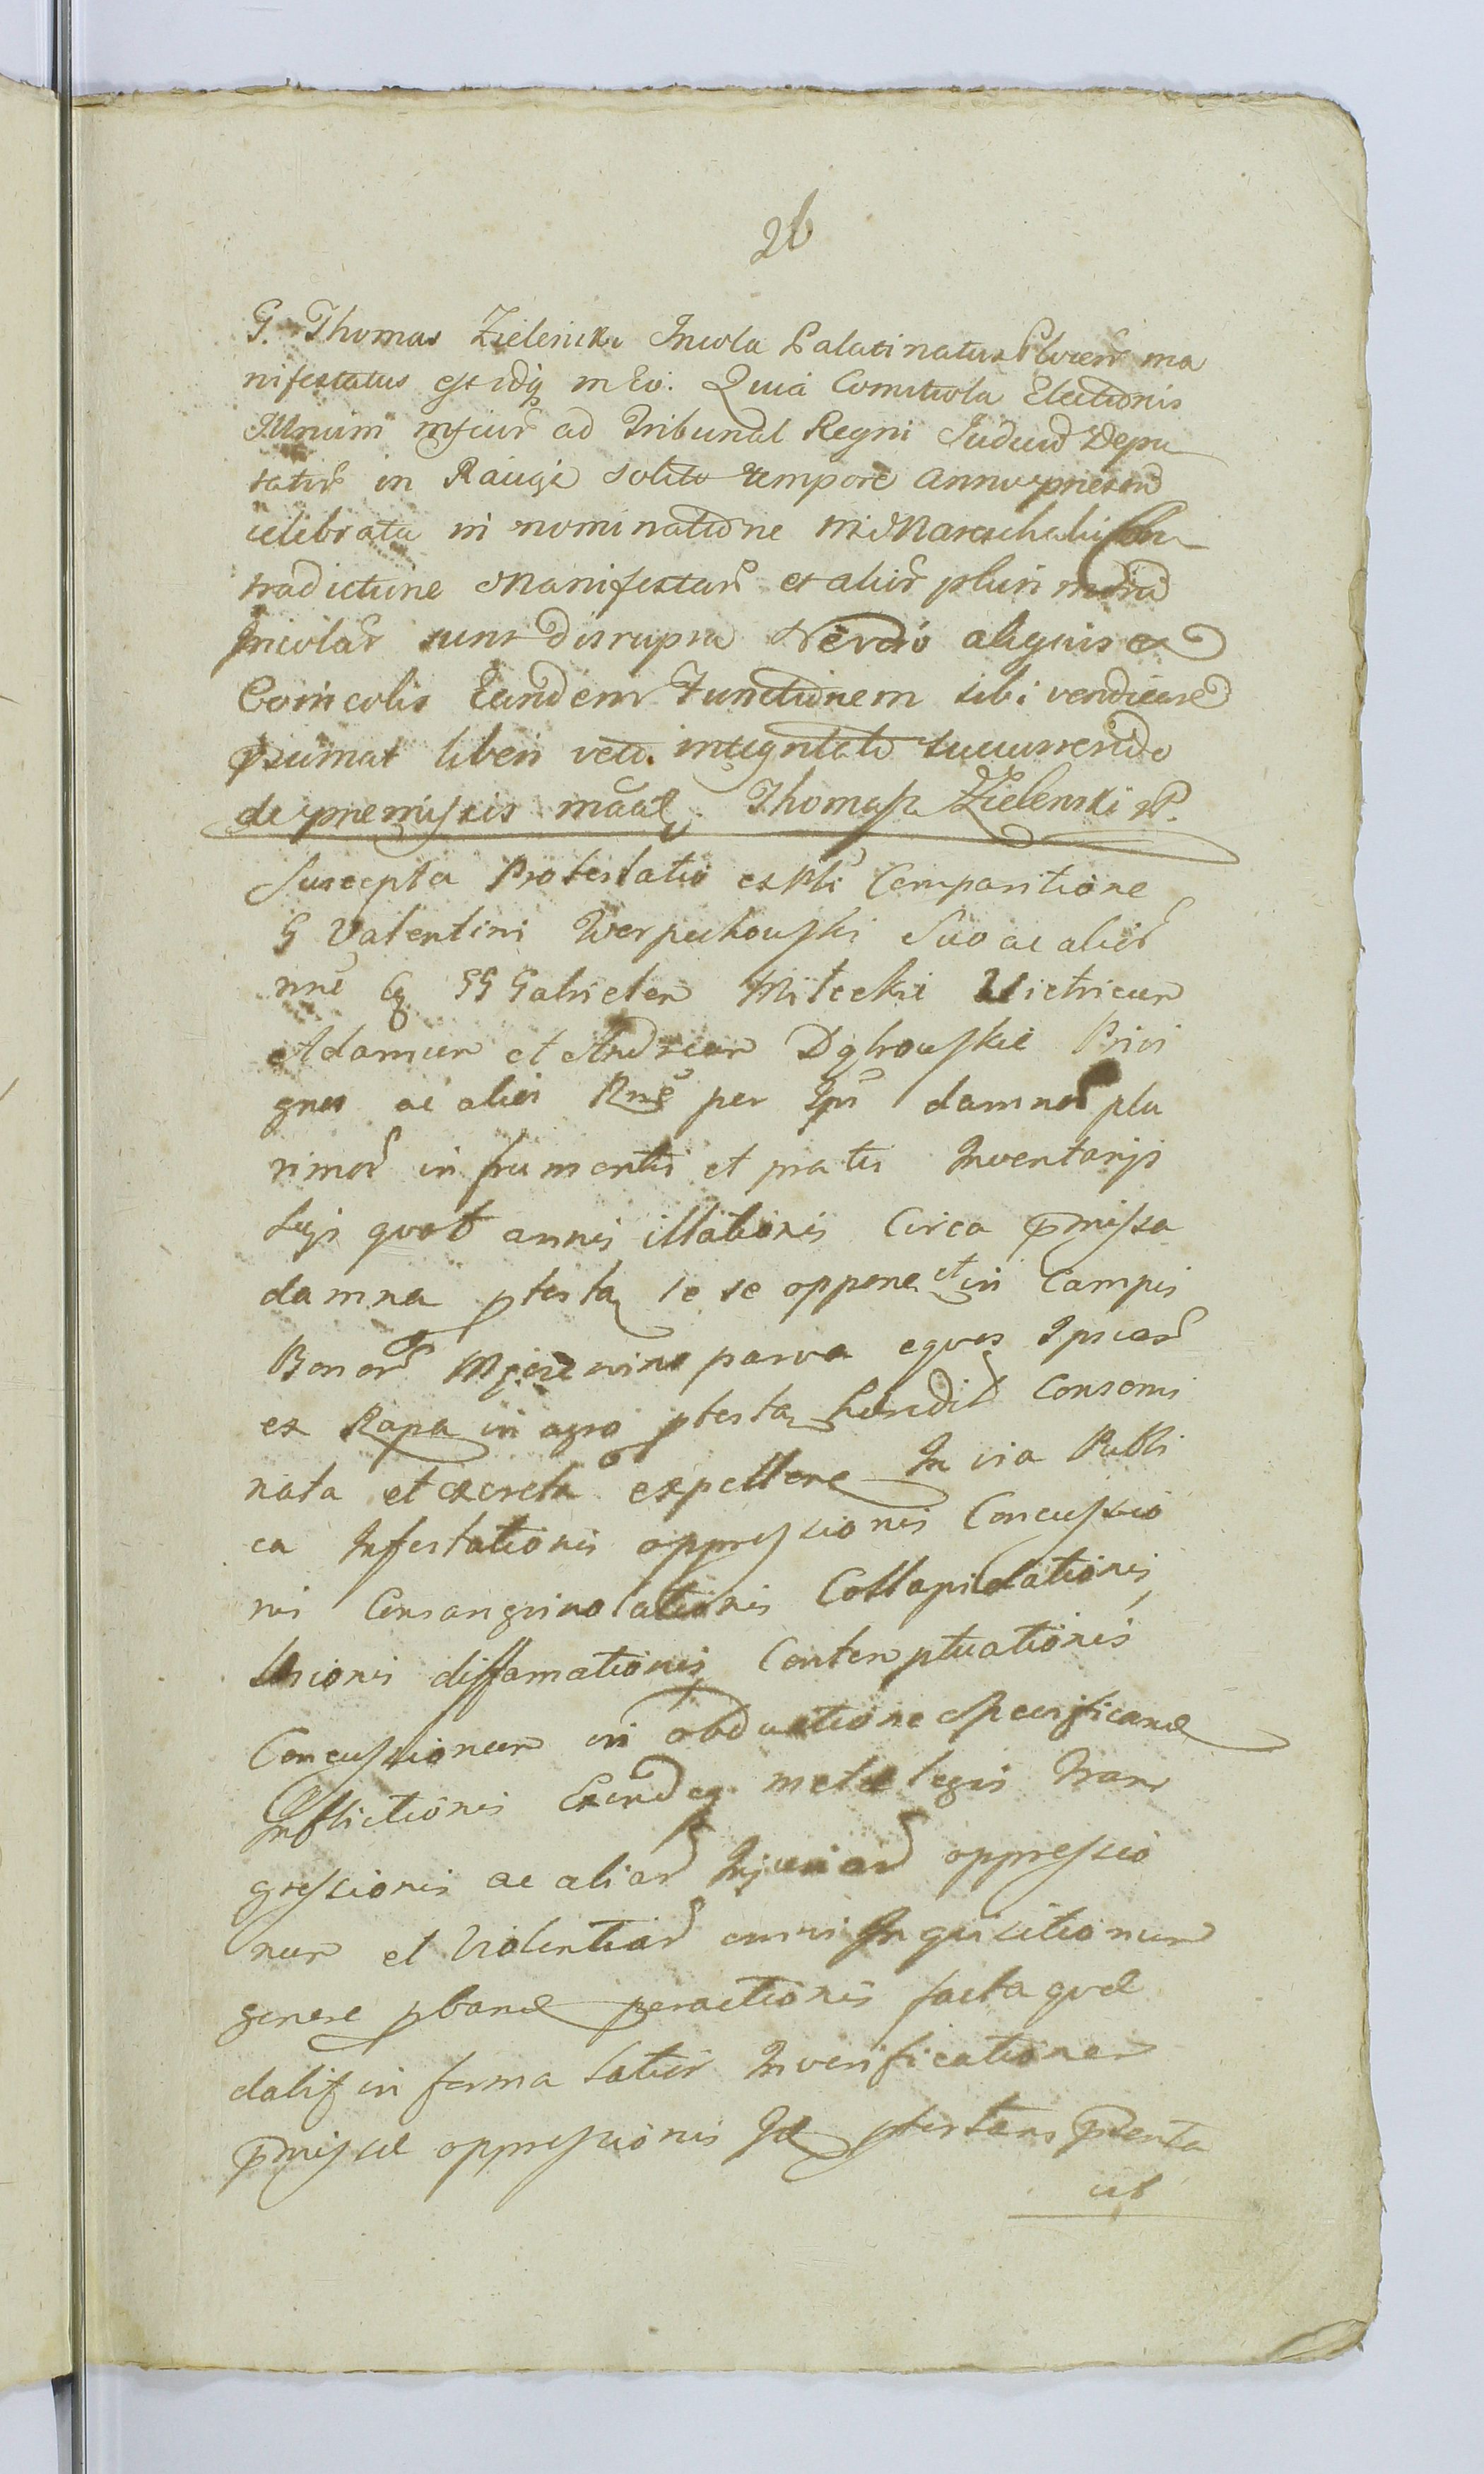 26
G. Thomas Zielenski Incola Palatinatus Plocen ma
nifestatus est idq in Eo. Quia Comitiola Electionis
Illmum mfcur ad Tribunal Regni Judicu Depu
tator in Raciąż solito tempore anno presen
celebrata in nominatione Mareschalci Con
tradictione Manifestan et alior plurimoru
Incolar sunt disrupta Ne vero aliquis ex
Coincolis Eandem Functionem sibi vendicare
psumat liberi veto integritati sucurrendo
de premissis maat. Thomasz Zielenski mP.
Suscepta Protestatio ex Comparitione
G Valentini Wierpechowski Suo ac alior
nne Cq GG Gabrielem Mileckie Victricum
Adamum et Andream Dąbrowskie Privi
gnos ac alios per Ipos damnor plu
rimor in frumentis et pratis Inventarijs
suis quot annis illationis Circa pmissa
damna ptestan se se opponen et in Campis
Bonor parva equos Ipsius
ex Rapa in agro ptestan Consemi
nata et excreta expellere In via Publi
ca Infestationis oppressionis Concussio
nis Consanguinolationis Collapidationis
Usionis diffamationis Contemptuationis
Concussionum in obductione specificand
Inflictionis Eundeq metu legis Trans
gressionis ac aliar Injuriar oppressio
num et Violentiar omni Inquisitionum
genere pband peractionis facta qvd
dalis in forma latior Inverificationem
pmissae oppressionis Id ptestans psenta
vit